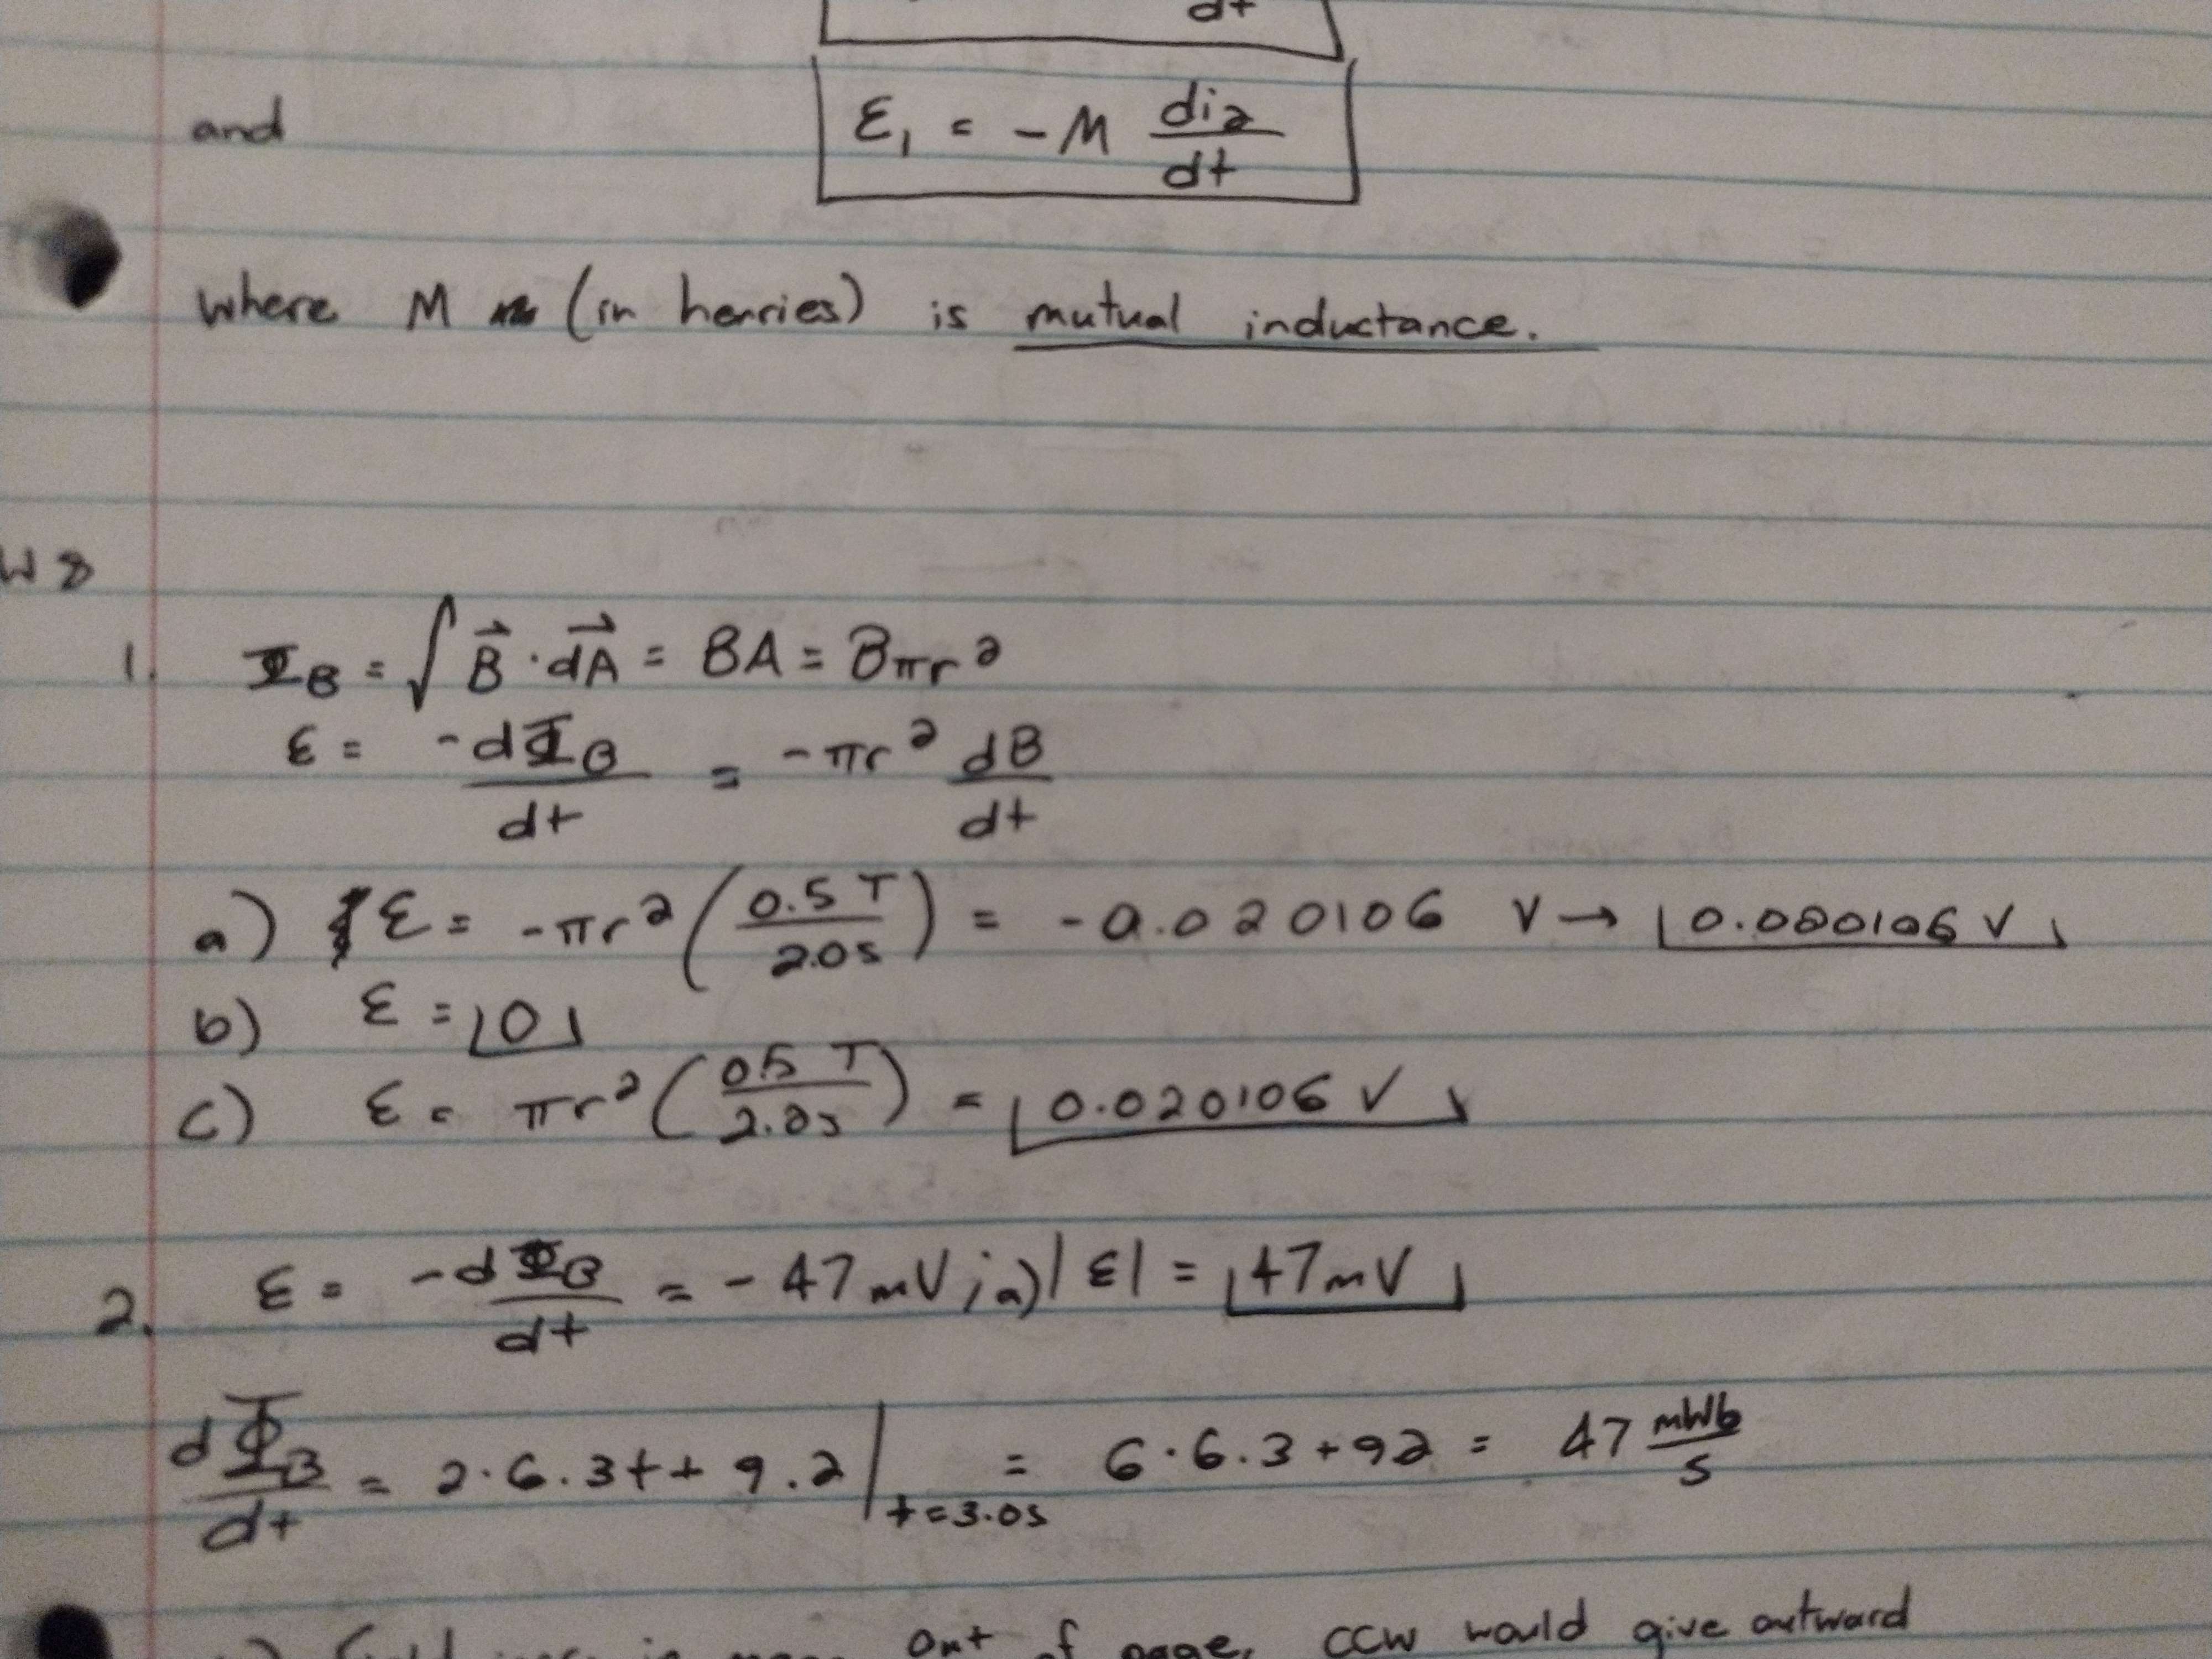 dt
and ε₁ = -M di₂/dt
where M (in henries) is mutual inductance.
W8
1. Φ_B = ∫ B⃗ · dA⃗ = BA = Bπr²
ε = -dΦ_B/dt = -πr² dB/dt
a) ε = -πr² (0.5 T/2.0s) = -0.020106 V → 0.020106 V
b) ε = 0
c) ε = πr² (0.5 T/2.0s) = 0.020106 V
2. ε = -dΦ_B/dt = -47 mV ; a) |ε| = 47 mV
dΦ_B/dt = 2·6.3t + 9.2 |t=3.0s = 6·6.3 + 92 = 47 mWb/s
out of page, CCW would give outward